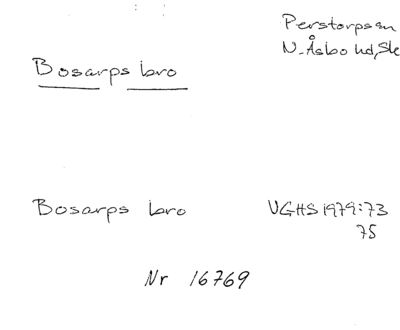 Perstorps sn
N. Åsbo hd, Sk
Bosarps bro
Bosarps bro VGHS 1979:73
75
Nr 16769